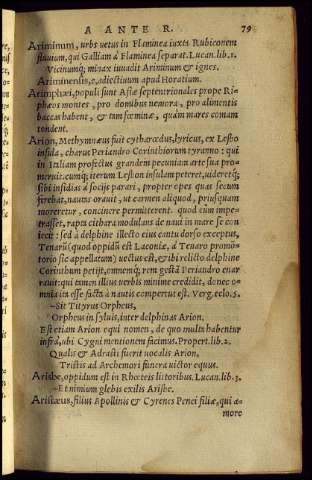 A ANTE R. 79
Ariminum, urbs uetus in Flaminea iuxta Rubiconem
fluuium, qui Galliam à Flaminea separat. Lucan. lib. 1.
Vicinumq; minax inuadit Ariminum & ignes.
Ariminensis, e, adiectiuum apud Horatium.
Arimphæi, populi sunt Asiæ septentrionales prope Ri-
phæos montes, pro domibus nemora, pro alimentis
baccas habent, & tum fœminæ, quàm mares comam
tondent.
Arion, Methymnæus fuit cytharœdus, lyricus, ex Lesbo
insula, charus Periandro Corinthiorum tyranno: qui
in Italiam profectus grandem pecuniam arte sua pro-
meruit. cumq; iterum Lesbon insulam peteret, uideretq;
sibi insidias à socijs parari, propter opes quas secum
firebat, nautas orauit, ut carmen aliquod, priusquam
moreretur, concinere permitterent. quod cùm impe-
trasset, rapta cithara modulans de naui in mare se con
iecit: sed à delphine illecto eius cantu dorso exceptus,
Tenarũ (quod oppidũ est Laconiæ, à Tenaro promō-
torio sic appellatum) uectus est, & ibi relicto delphine
Corinthum petijt, omnemq; rem gestā Periandro enar
rauit: qui tamen illius uerbis minime credidit, donec o-
mnia ita esse facta à nautis compertum est. Verg. eclo. 5.
–Sit Tityrus Orpheus,
Orpheus in syluis, inter delphinas Arion.
Est etiam Arion equi nomen, de quo multa habentur
infrà, ubi Cygni mentionem facimus. Propert. lib. 2.
Qualis & Adrasti fuerit uocalis Arion,
Tristis ad Archemori funera uictor equus.
Arisbe, oppidum est in Rhœteis littoribus. Lucan. lib. 3.
–Et nimium glebis exilis Arisbe.
Aristæus, filius Apollinis & Cyrenes Penei filiæ, qui a-
more